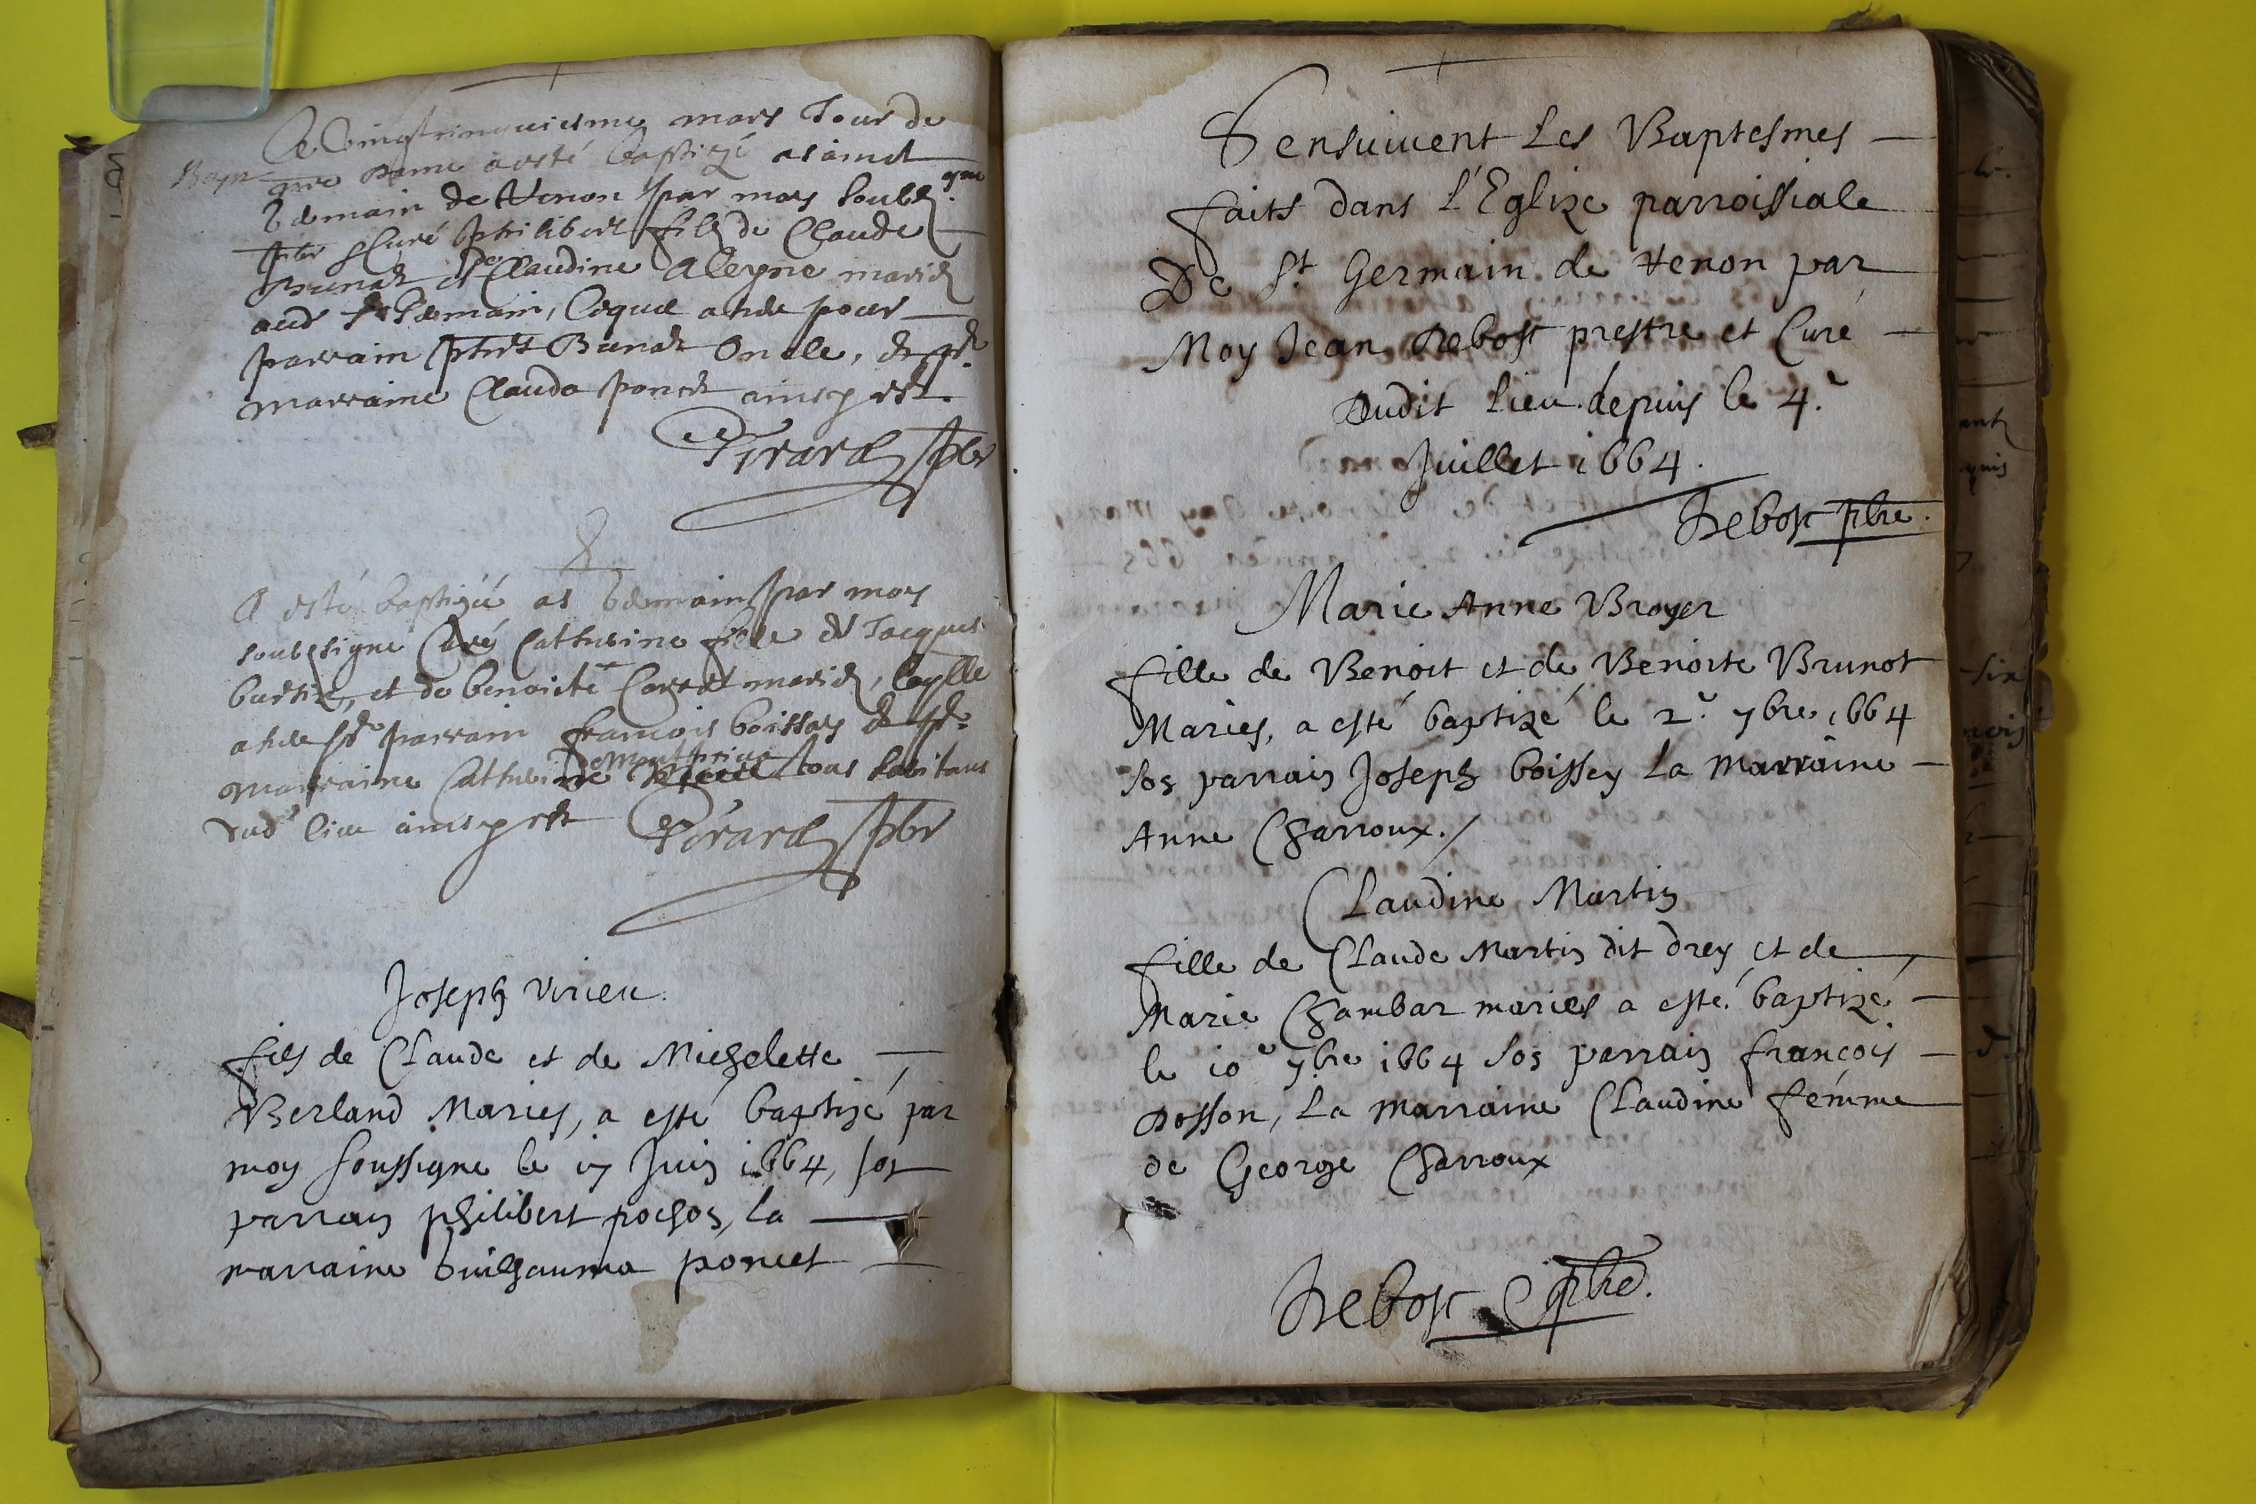 Le Vingtcinquiesme mars Jour de
Bapt.
nre Dame a esté baptizé a saint
Germain de Henon par moy soubs.gné
pbr & Curé philibert filz de Claude
Brunat et de Claudine Aleyne mariez
aud St Germain, lequel a heu pour
parrain phirt Brunat Oncle, & pr
marraine Clauda poncet ainsy est.
Girard pbr
A esté baptizéé a St Germain par moy
soubsigné Curé Catherine fille de Jacques
et de benoicte mariez, laqlle
a heu pr parrain françois boissay & pr
marraine Catherine tous habitans
dud lieu ainsy est
Girard pbr
Joseph virieu.
fils de Claude et de Michelette
Berland Mariés, a esté baptizé par
moy soussigné le 17 Juin 1664, son
parrain philibert pochon, la
marraine Guilhauma poncet
S'ensuivent Les Baptesmes
faits dans l'Eglize parroissiale
De St Germain de Henon par
Moy Jean Debost prestre et Curé
Dudit Lieu depuis le 4e
Juillet 1664.
Debost pbre.
Marie Anne Broyer
fille de Benoit et de Benoite Brunot
Mariés, a esté baptizé le 2e 7bre 1664
son parrain Joseph boissey La Marraine
Anne Charroux./
Claudine Martin
fille de Claude Martin dit drey et de
Marie Chambar mariés a esté baptizé
le 10e 7bre 1664 son parrain françois
Dosson, La Marraine Claudine femme
de George Charroux
Debost pbre.